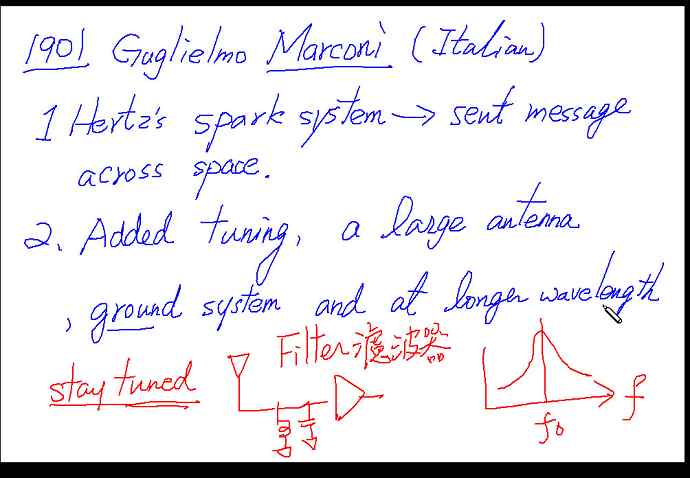 1901 Guglielmo Marconi (Italian)
1 Hertz's spark system → sent message
across space.
2. Added tuning, a large antenna
, ground system and at longer wavelength
Filter 濾波器
stay tuned
f
f0